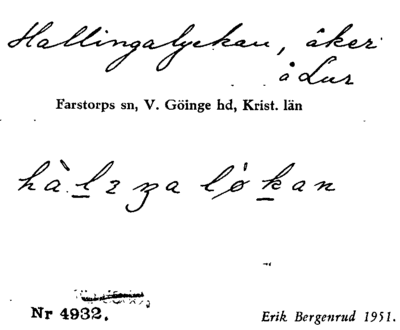 Hallingalyckan, åker
å Lur
Farstorps sn, V. Göinge hd, Krist. län
Nr 4932.
Erik Bergenrud 1951.